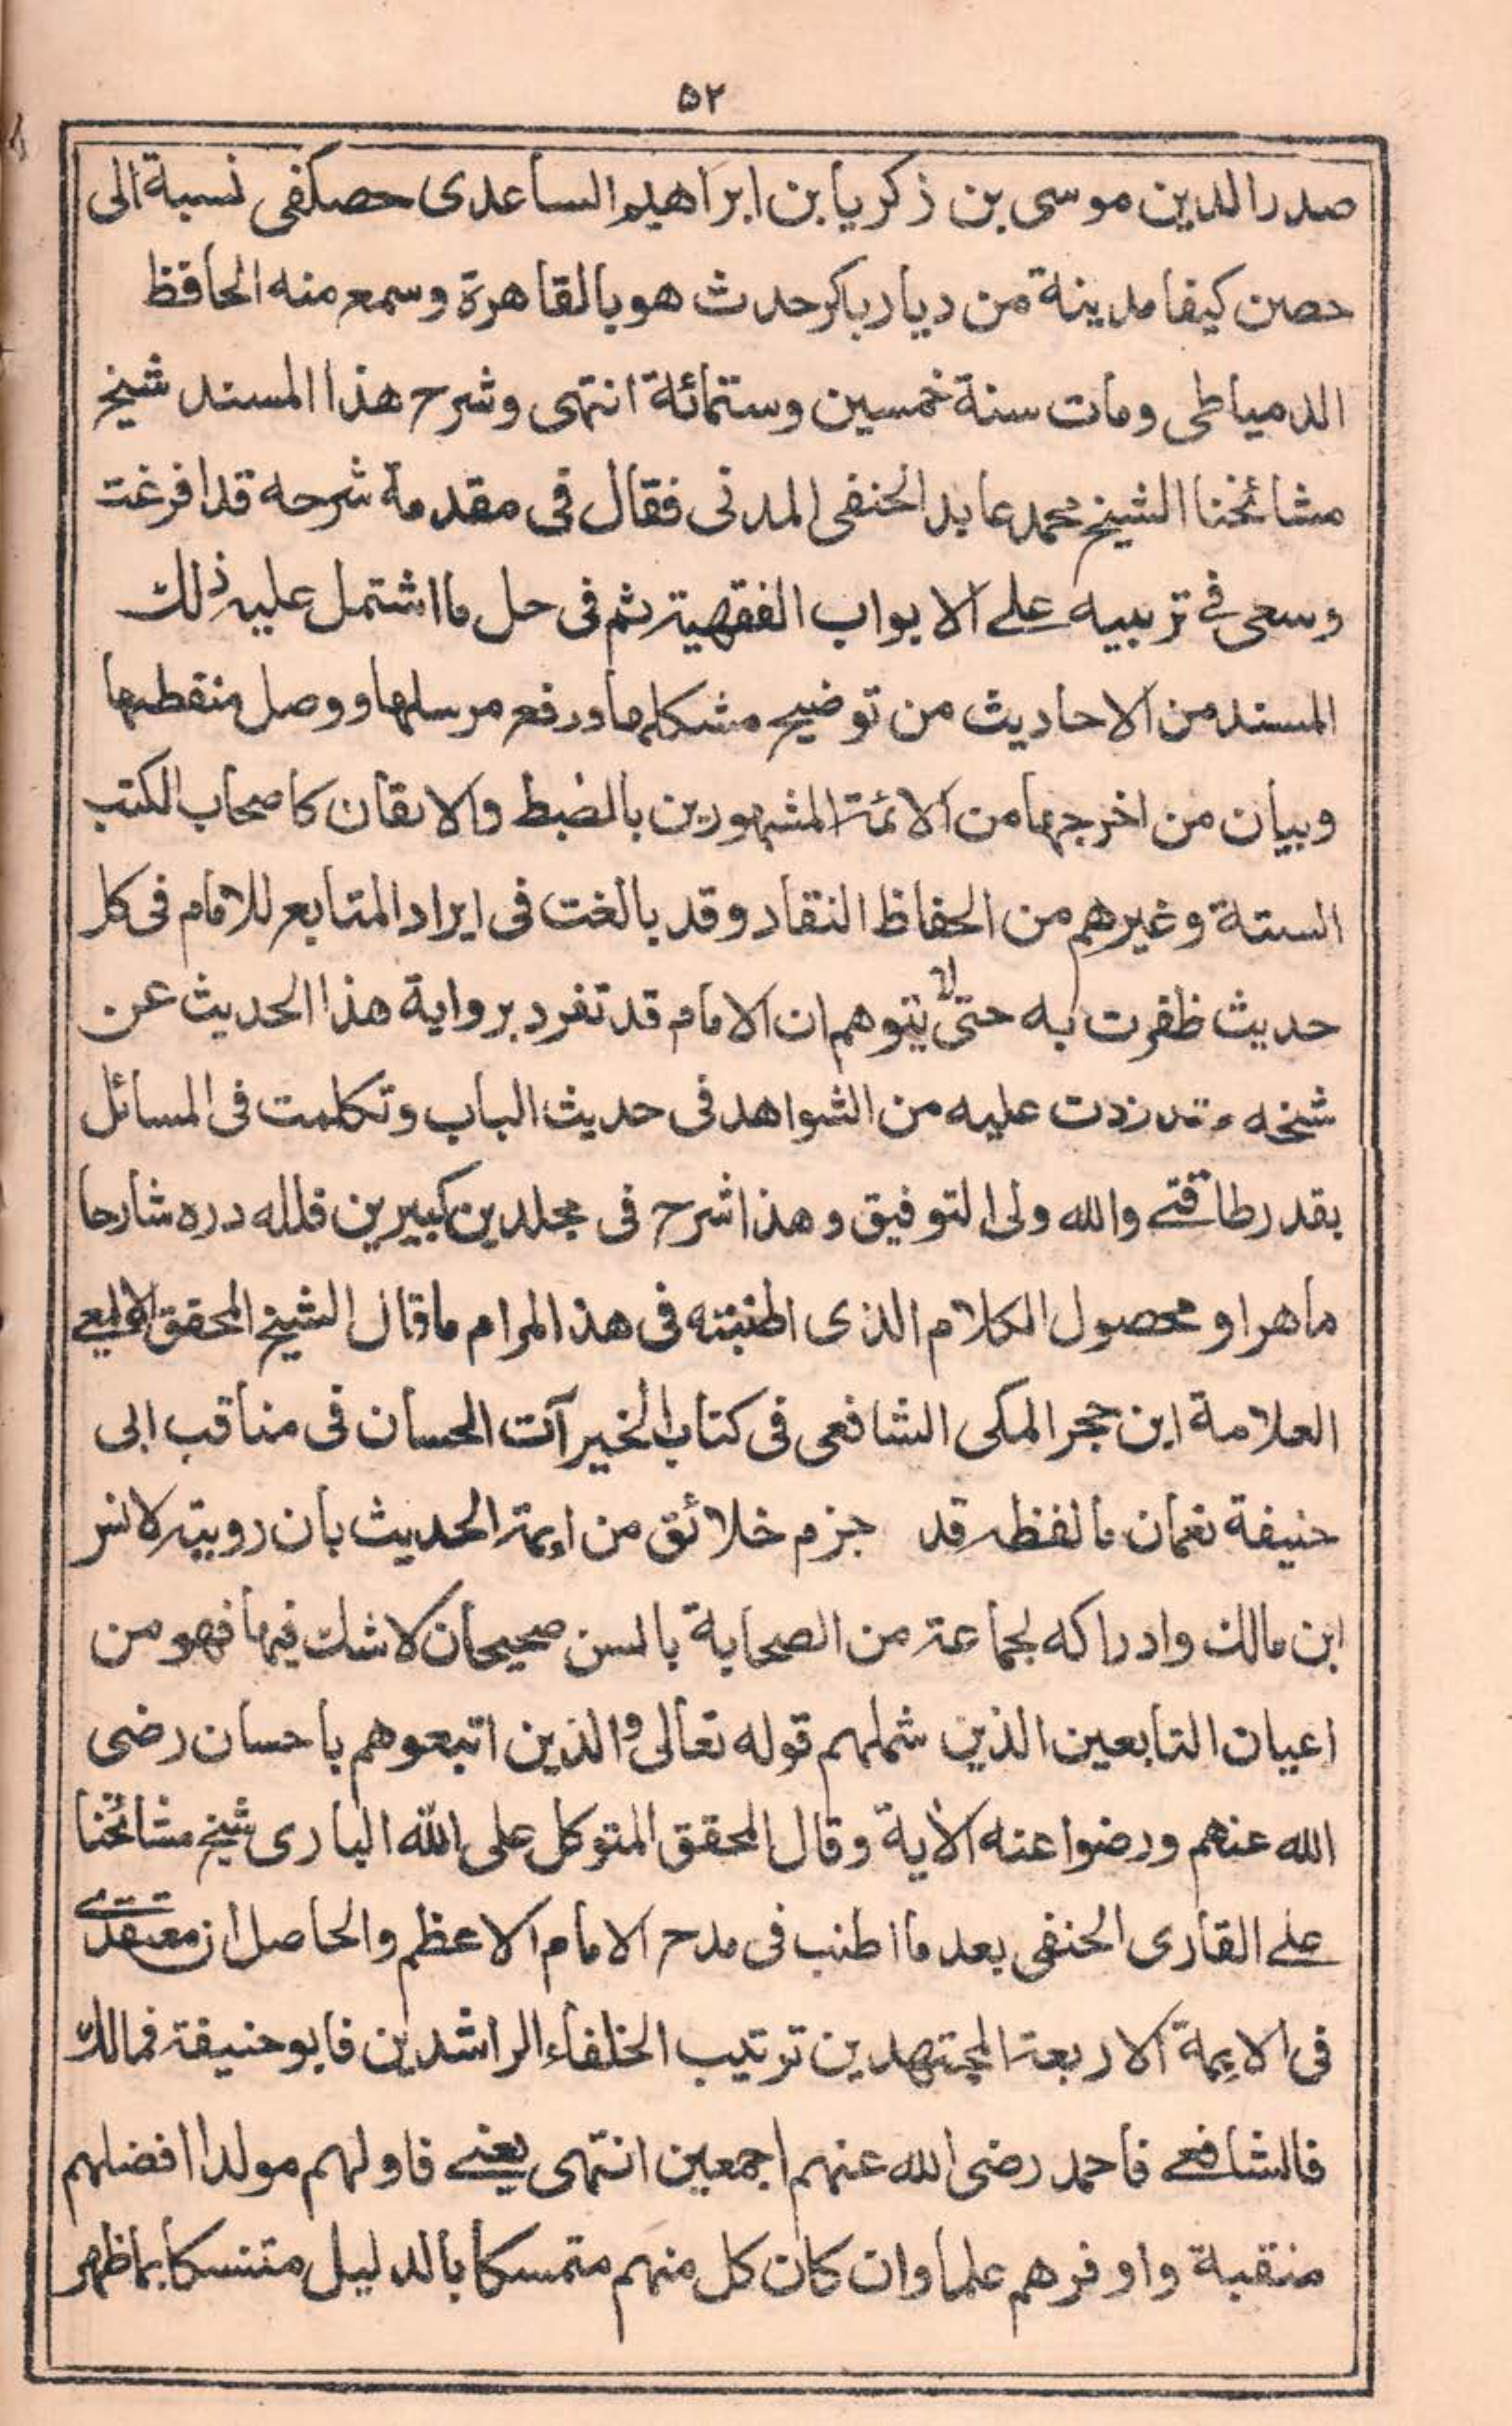 ۵۲
صدر الدين موسى بن زكريا بن ابراهيم الساعدى حصكفى نسبة الى
حصن كيفا مدينة من ديار باكر حدث هو بالقاهرة وسمع منه الحافظ
الدمياطى ومات سنة خمسين وستمائة انتهى وشرح هذا المسند شيخ
مشائخنا الشيخ محمد عابد الحنفى المدنى فقال فى مقدمة شرحه قد افرغت
وسعى فے ترتيبه علے الابواب الفقهية ثم فى حل ما اشتمل عليه ذلك
المسند من الاحاديث من توضيح مشكلها ورفع مرسلها ووصل منقطعها
وبيان من اخرجها من الائمة المشهورين بالضبط والاتقان كاصحاب الكتب
الستة وغيرهم من الحفاظ النقاد وقد بالغت فى ايراد المتابع للامام فى كل
حديث ظفرت به حتى لا يتوهم ان الامام قد تفرد برواية هذا الحديث عن
شيخه وقد زدت عليه من الشواهد فى حديث الباب وتكلمت فى المسائل
بقدر طاقتے والله ولى التوفيق وهذا شرح فى مجلدين كبيرين فلله دره شارحا
ماهرا ومحصول الكلام الذى اطنبته فى هذا المرام ما قال الشيخ المحقق الالمعے
العلامة ابن حجر المكى الشافعى فى كتاب الخيرآت الحسان فى مناقب ابى
حنيفة نعمان ما لفظه قد جزم خلائق من ايمة الحديث بان رويته لانس
ابن مالك وادراكه لجماعة من الصحابة بالسن صحيحان لا شك فيها فهو من
اعيان التابعين الذين شملهم قوله تعالى والذين اتبعوهم باحسان رضى
الله عنهم ورضوا عنه الاية وقال المحقق المتوكل على الله البارى شيخ مشائخنا
علے القارى الحنفى بعد ما اطنب فى مدح الامام الاعظم والحاصل ان معتقدے
فى الايمة الاربعة المجتهدين ترتيب الخلفاء الراشدين فابو حنيفة فمالك
فالشافعے فاحمد رضى الله عنهم اجمعين انتهى يعنے فاولهم مولدا افضلهم
منقبة واوفرهم علما وان كان كل منهم متمسكا بالدليل متنسكا بما ظهر